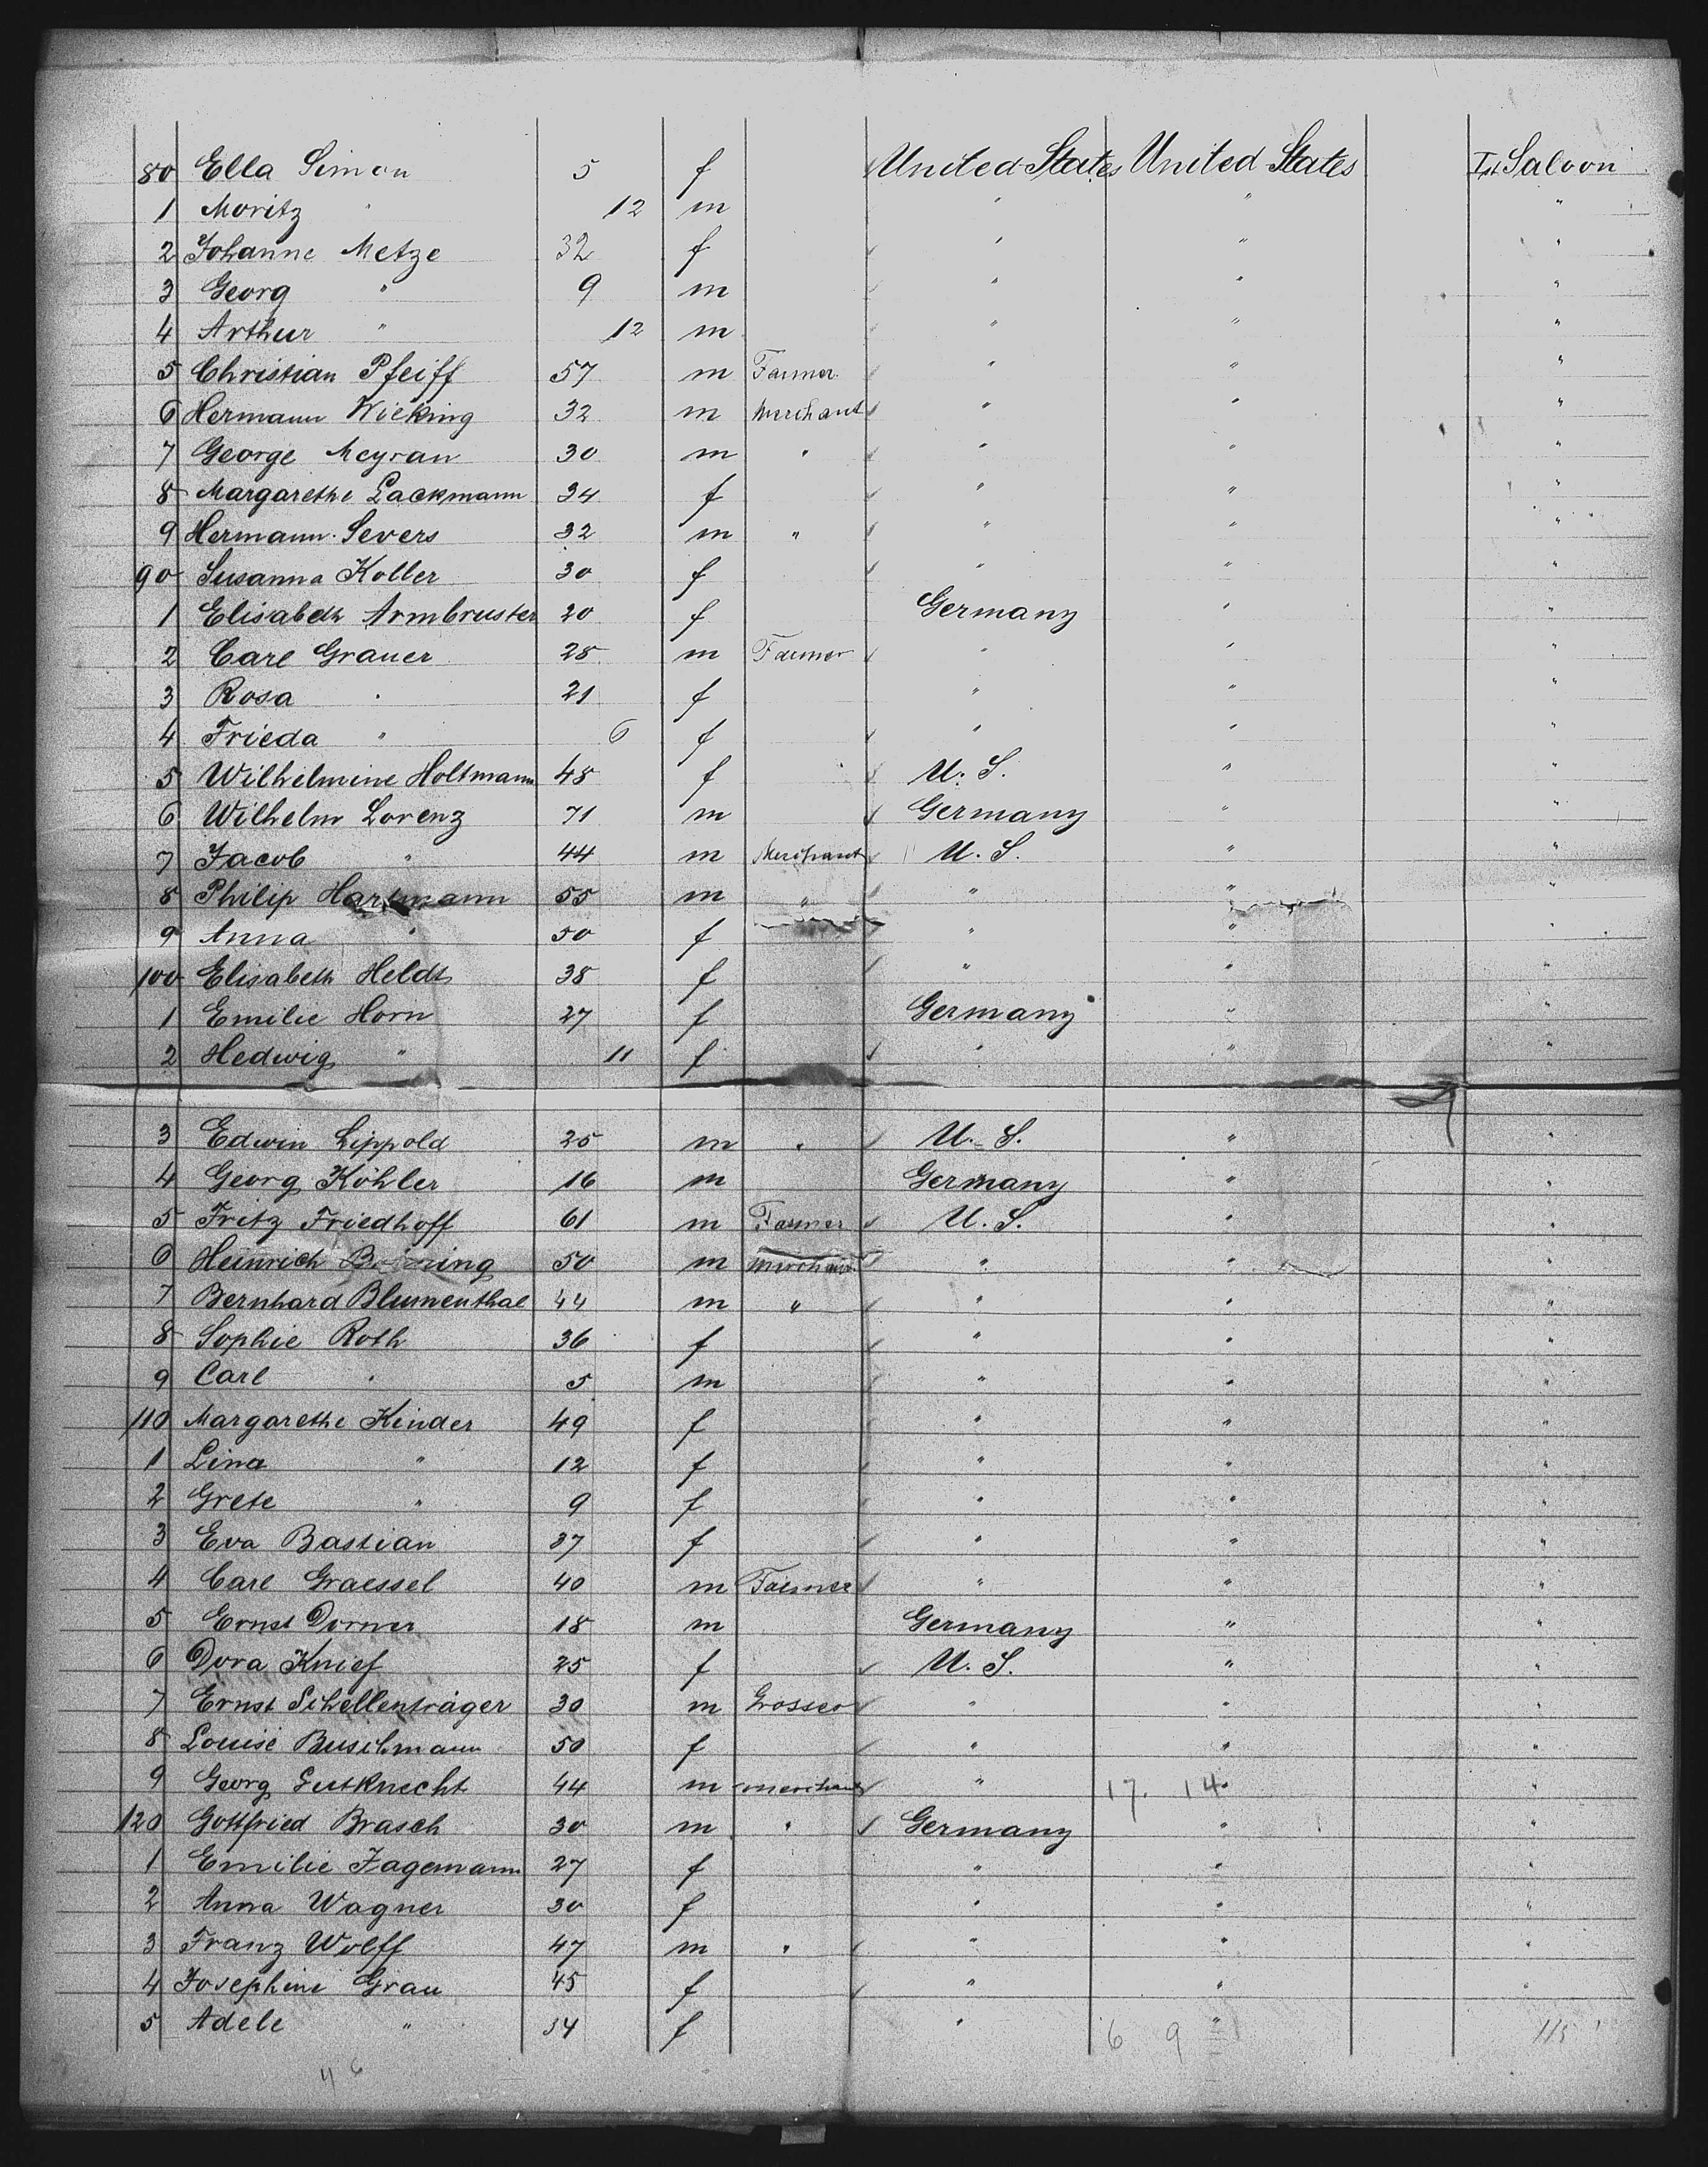 80 Ella Simon 5 f United States United States Ist Saloon
1 Moritz " 12 m " " "
2 Johanne Metze 32 f " " "
3 Georg " 9 m " " "
4 Arthur " 12 m " " "
5 Christian Pfeiff 57 m Farmer " " "
6 Hermann Wieking 32 m Merchant " " "
7 George Meyran 30 m " " " "
8 Margarethe Lackmann 34 f " " "
9 Hermann Severs 32 m " " " "
90 Susanna Koller 30 f " " "
1 Elisabeth Armbruster 20 f Germany " "
2 Carl Grauer 28 m Farmer " " "
3 Rosa " 21 f " " "
4 Frieda " 6 f " " "
5 Wilhelmine Holtmann 48 f U. S. " "
6 Wilhelm Lorenz 71 m Germany " "
7 Jacob " 44 m Merchant U. S. " "
8 Philip Hartmann 55 m " " " "
9 Anna " 50 f " " "
100 Elisabeth Heldt 38 f " " "
1 Emilie Horn 27 f Germany " "
2 Hedwig " 11 f " " "
3 Edwin Lippold 25 m " U. S. " "
4 Georg Köhler 16 m Germany " "
5 Fritz Friedhoff 61 m Farmer U. S. " "
6 Heinrich 50 m Merchant " " "
7 Bernhard Blumenthal 44 m " " " "
8 Sophie Roth 36 f " " "
9 Carl " 5 m " " "
110 Margarethe Kinder 49 f " " "
1 Lina " 12 f " " "
2 Grete " 9 f " " "
3 Eva Bastian 37 f " " "
4 Carl Graessel 40 m Farmer " " "
5 Ernst Dorner 18 m Germany " "
6 Dora Knief 25 f U. S. " "
7 Ernst Schellenträger 30 m Grosser " " "
8 Louise Buschmann 50 f " " "
9 Georg Gutknecht 44 m merchant " 17. 14 " "
120 Gottfried Brasch 30 m " Germany " "
1 Emilie Jagemann 27 f " " "
2 Anna Wagner 30 f " " "
3 Franz Wolff 47 m " " " "
4 Josephine Grau 45 f " " "
5 Adele " 34 f " 6 9 " 115
46